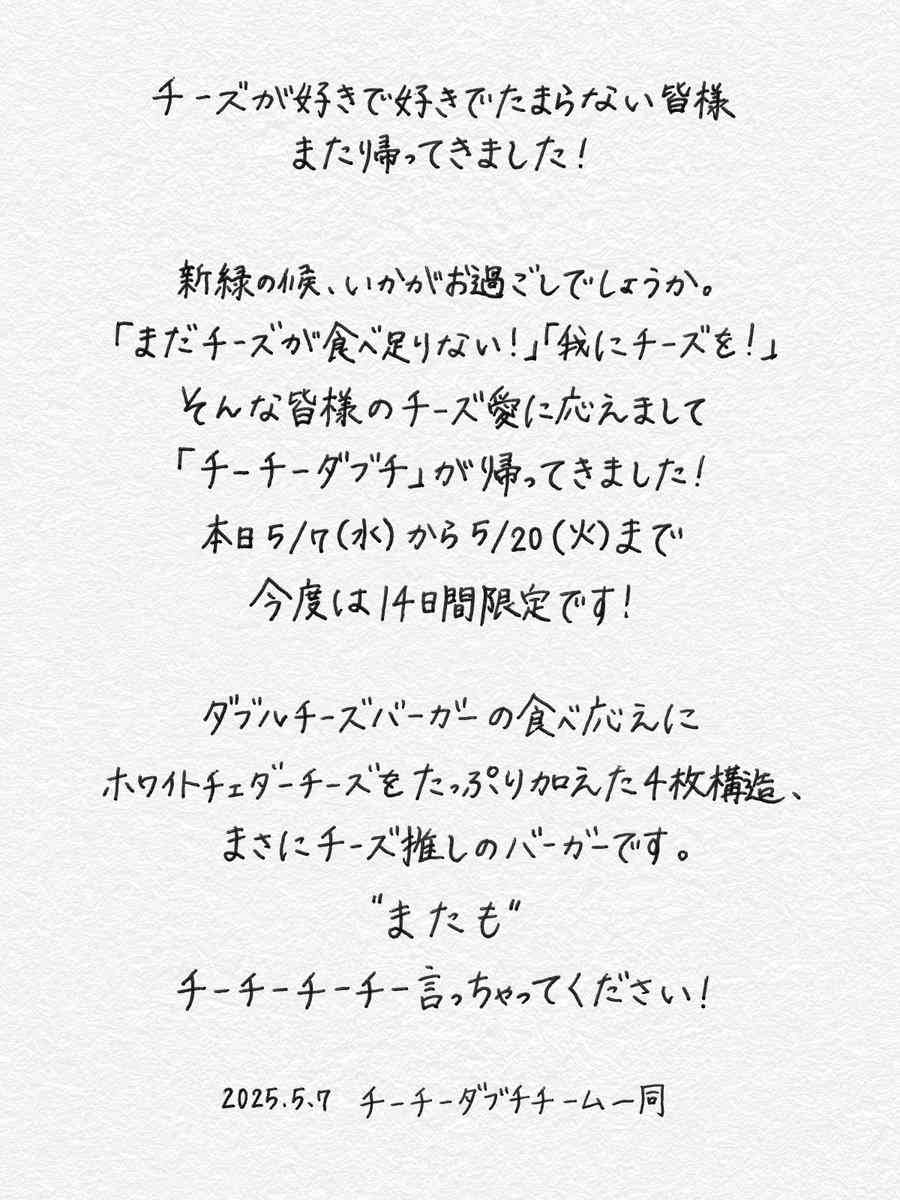 チーズが好きで好きでたまらない皆様
またり帰ってきました!
新緑の候、いかがお過ごしでしょうか。
「まだチーズが食べ足りない!」「我にチーズを!」
そんな皆様のチーズ愛に応えまして
「チーチーダブチ」が帰ってきました!
本日5/7(水)から5/20(火)まで
今度は14日間限定です!
ダブルチーズバーガーの食べ応えに
ホワイトチェダーチーズをたっぷり加えた4枚構造、
まさにチーズ推しのバーガーです。
"またも"
チーチーチーチー言っちゃってください!
2025.5.7 チーチーダブチチーム一同